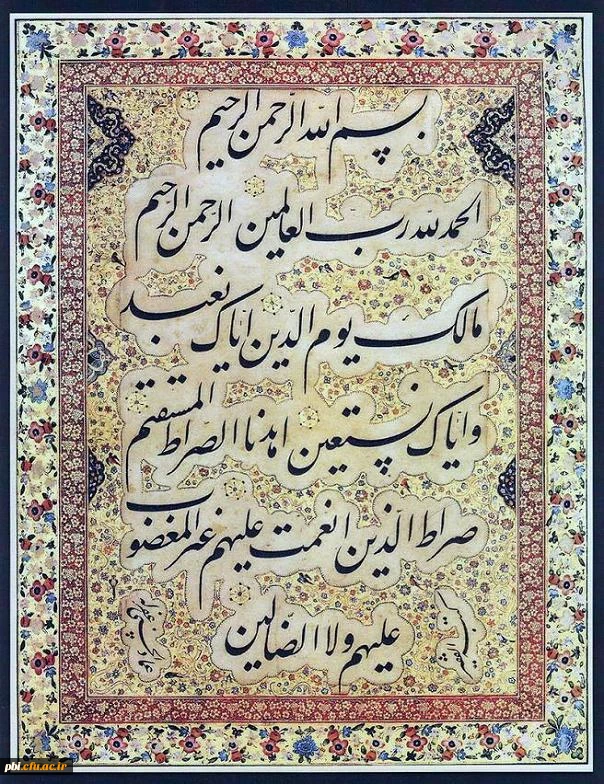 بسم الله الرحمن الرحیم
الحمد لله رب العالمین الرحمن الرحیم
مالک یوم الدین ایاک نعبد
و ایاک نستعین اهدنا الصراط المستقیم
صراط الذین انعمت علیهم غیر المغضوب
علیهم ولا الضالین
pbi.cfu.ac.ir